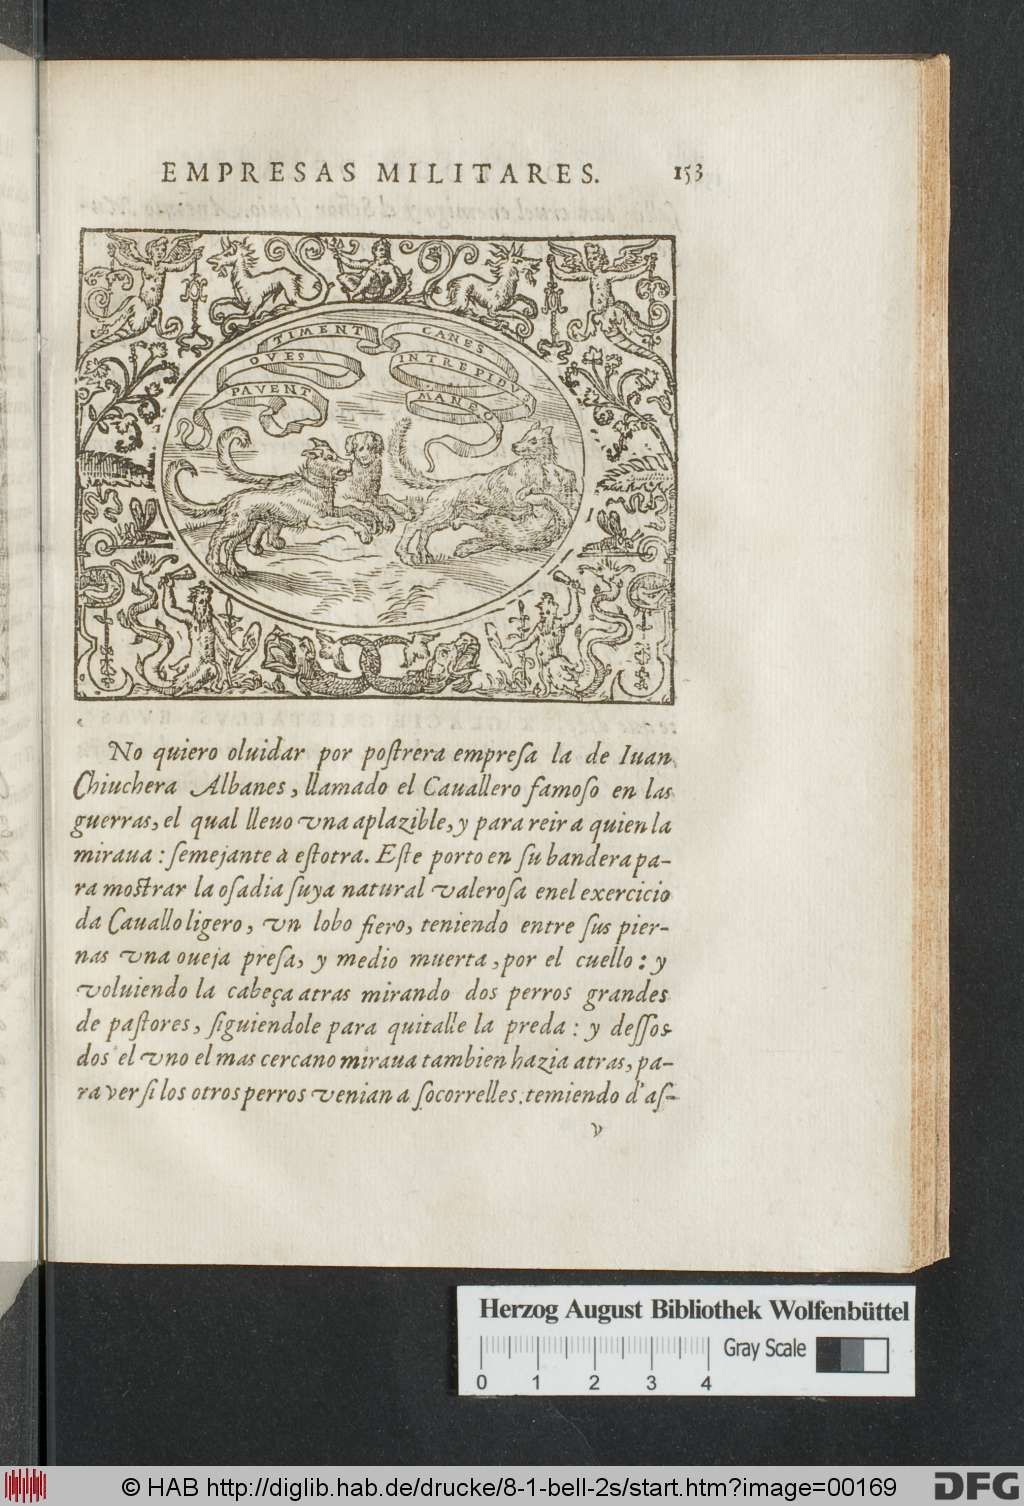 EMPRESAS MILITARES. 153
TIMENT CANES
OVES INTREPIDVS
PAVENT MANEO
No quiero oluidar por poſtrera empreſa la de Iuan
Chiuchera Albanes, llamado el Cauallero famoſo en las
guerras, el qual lleuo vna aplazible, y para reir a quien la
miraua: ſemejante à eſtotra. Eſte porto en ſu bandera pa-
ra moſtrar la oſadia ſuya natural valeroſa enel exercicio
da Cauallo ligero, vn lobo fiero, teniendo entre ſus pier-
nas vna oueja preſa, y medio muerta, por el cuello: y
voluiendo la cabeça atras mirando dos perros grandes
de paſtores, ſiguiendole para quitalle la preda: y deſſos
dos el vno el mas cercano miraua tambien hazia atras, pa-
ra ver ſi los otros perros venian a ſocorrelles, temiendo d'aſ-
v
Herzog August Bibliothek Wolfenbüttel
Gray Scale
0 1 2 3 4
© HAB http://diglib.hab.de/drucke/8-1-bell-2s/start.htm?image=00169
DFG